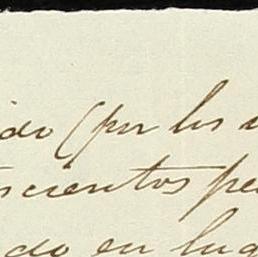 ido (por los
scientos pe
do en lug